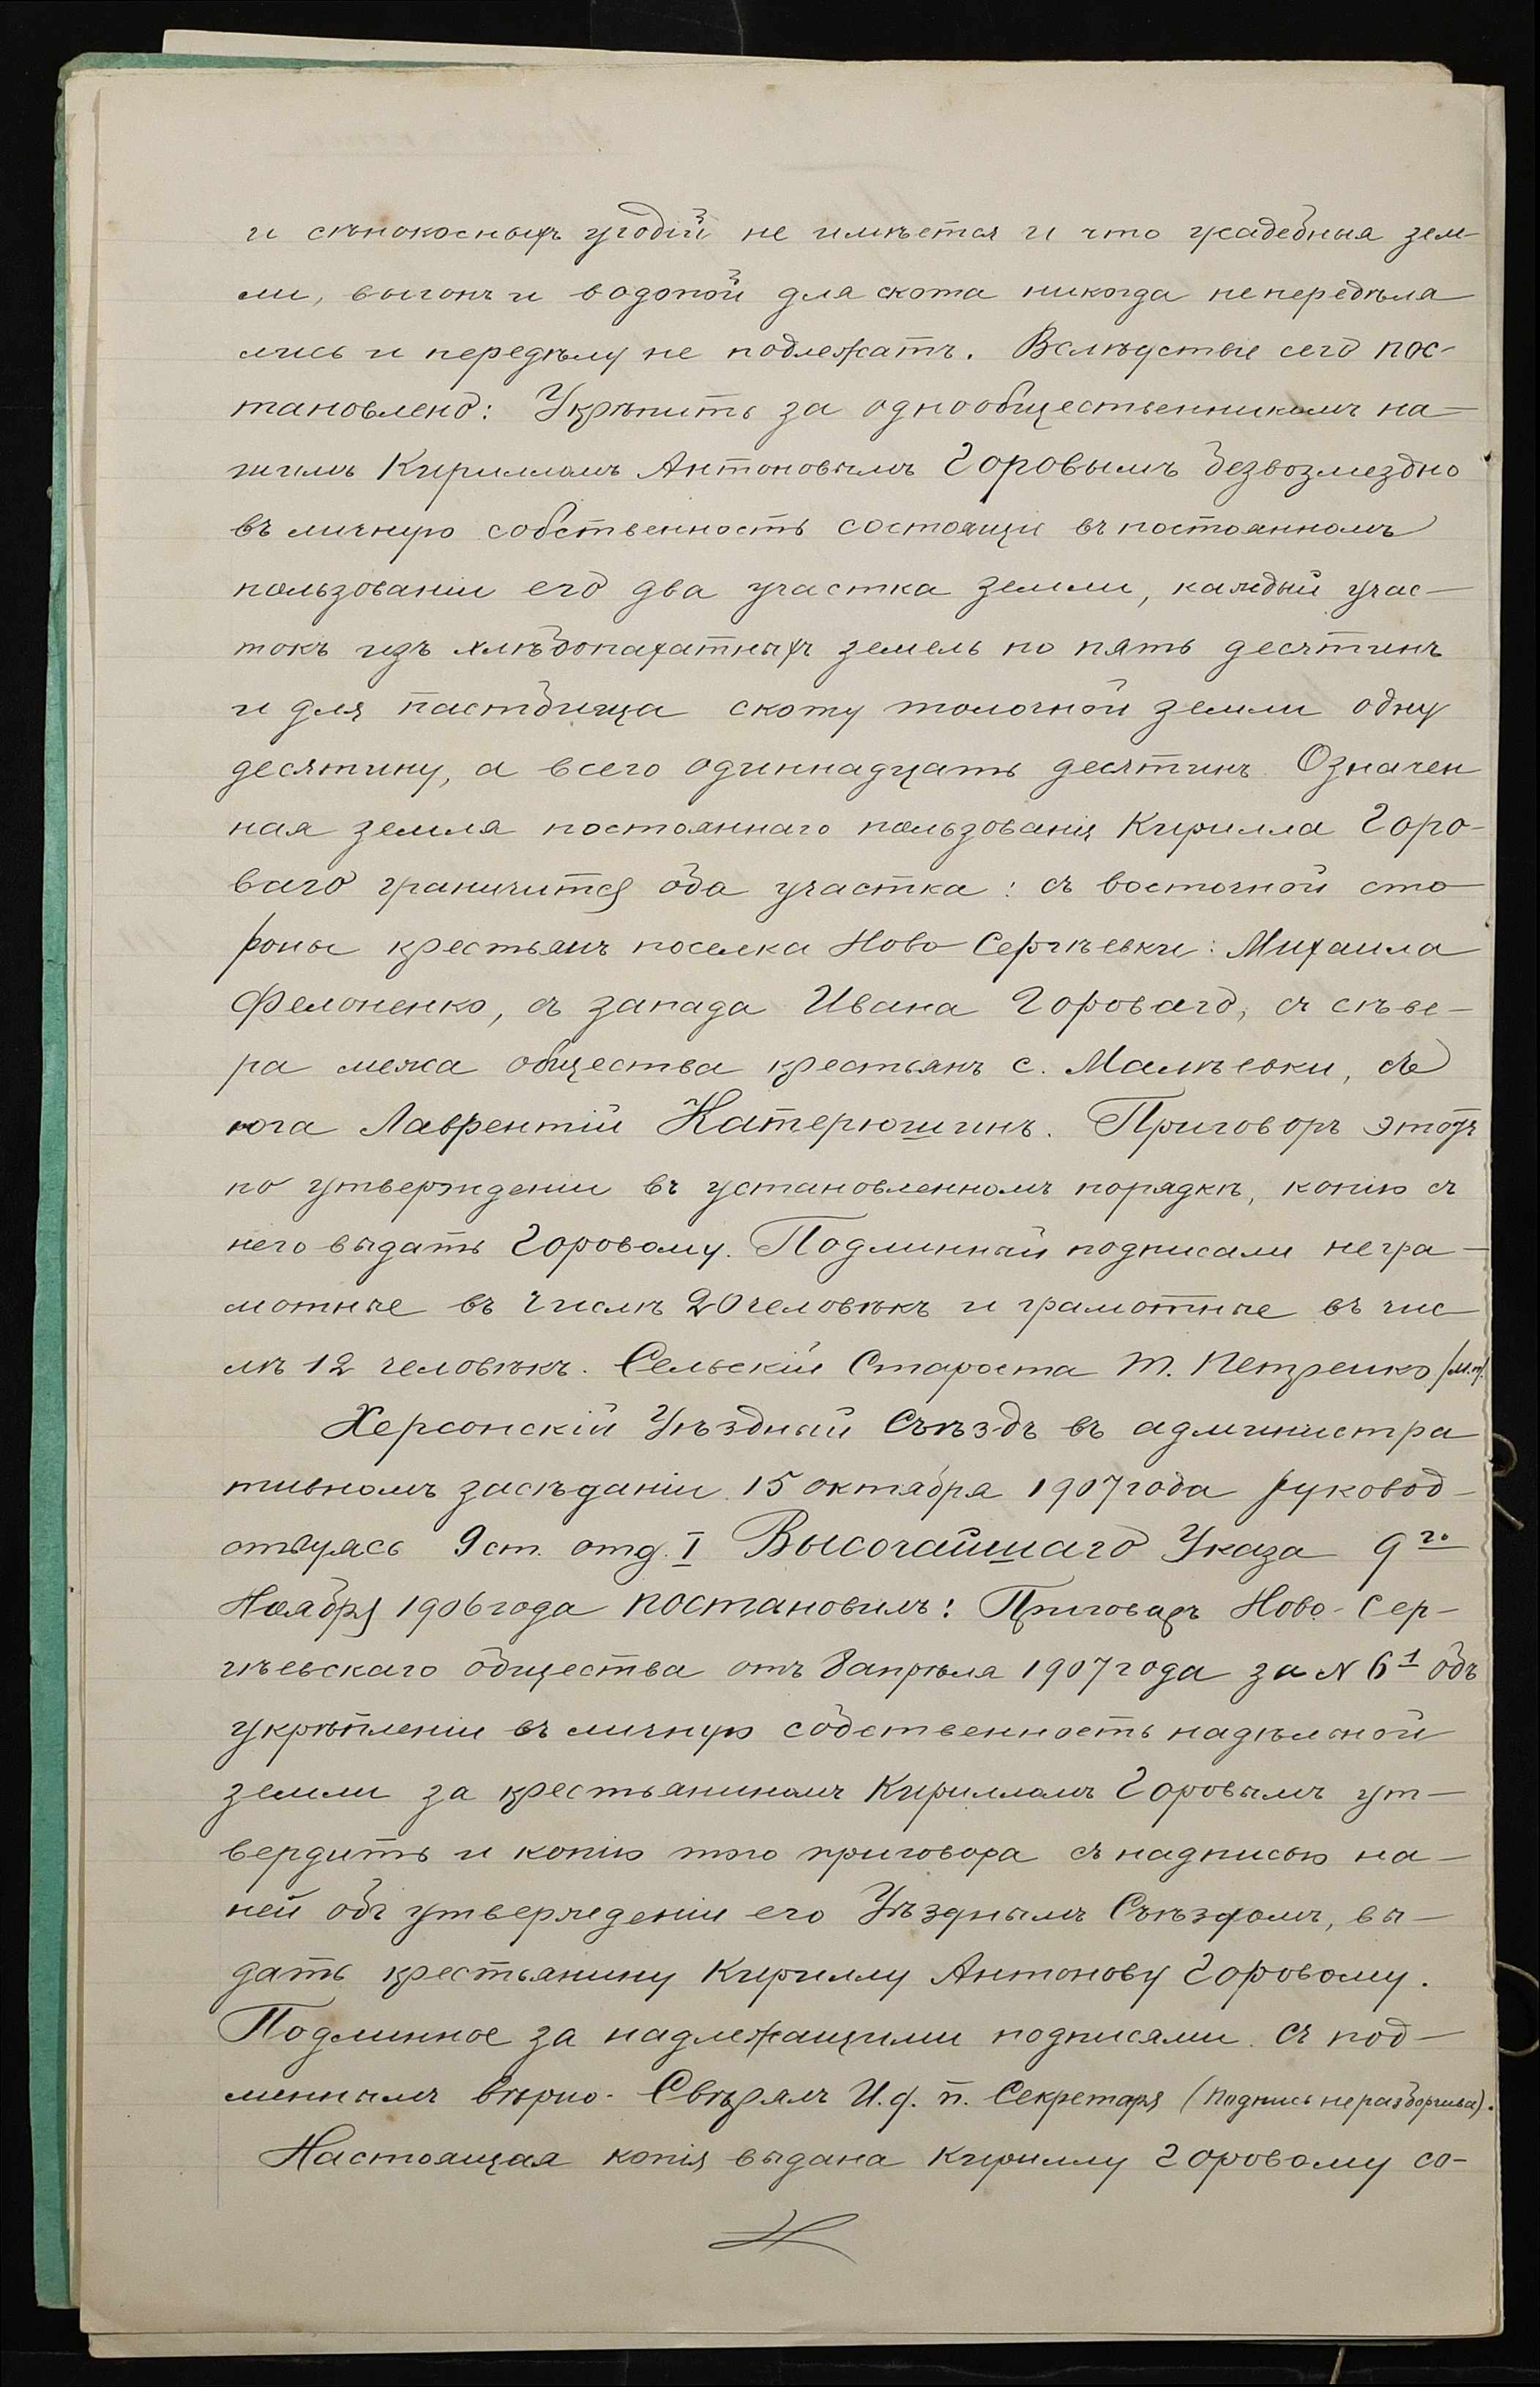 и сѣнокосныхъ угодій не имѣется и что усадебныя зем-
ли, выгонъ и водопой для скота никогда не передѣля
лись и передѣлу не подлежатъ. Вслѣдствіе сего пос-
тановлено: Укрѣпить за однообщественникомъ на-
шимъ Кирилломъ Антоновымъ Горовымъ безвозмездно
въ личную собственность состоящіе въ постоянномъ
пользованіи его два участка земли, каждый учас-
токъ изъ хлѣбопахатныхъ земель по пять десятинъ
и для пастбища скоту толочной земли одну
десятину, а всего одиннадцать десятинъ. Означен
ная земля постояннаго пользованія Кирилла Горо-
ваго граничится оба участка: съ восточной сто-
роны крестьянъ поселка Ново-Сергѣевки: Михаила
Фелоненко, съ запада Ивана Горового, съ сѣве-
ра межа общества крестьянъ с. Малѣевки, съ
юга Лаврентій Катерюшинъ. Приговоръ этотъ
по утвержденіи въ установленномъ порядкѣ, копію съ
него выдать Горовому. Подлинный подписали негра-
мотные въ числѣ 20 человѣкъ и грамотные въ чис
лѣ 12 человѣкъ. Сельскій Староста Т. Петренко /м.п/.
Херсонскій Уѣздный Съѣздъ въ администра
тивномъ засѣданіи 15 октября 1907 года руковод-
ствуясь 9 ст. отд. I Высочайшаго Указа 9го
Ноября 1906 года постановилъ: Приговоръ Ново-Сер-
гѣевскаго общества отъ 8 апрѣля 1907 года за N 61 объ
укрѣпленіи въ личную собственность надѣльной
земли за крестьяниномъ Кирилломъ Горовымъ ут-
вердить и копію того приговора съ надписью на-
ней объ утвержденіи его Уѣзднымъ Съѣздомъ, вы-
дать крестьянину Кириллу Антонову Горовому.
Подлинное за надлежащими подписями. Съ под-
линнымъ вѣрно. Свѣрялъ И.д. п. Секретаря (подпись неразборчива).
Настоящая копія выдана Кириллу Горовому со-